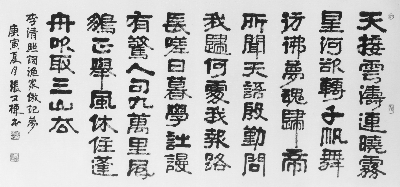 天接雲濤連曉霧
星河欲轉千帆舞
彷彿夢魂歸帝
所聞天語殷勤問
我歸何處我報路
長嗟日暮學詩謾
有驚人句九萬里風
鵬正舉風休住蓬
舟吹取三山去
李清照詞漁家傲記夢
庚寅夏月張